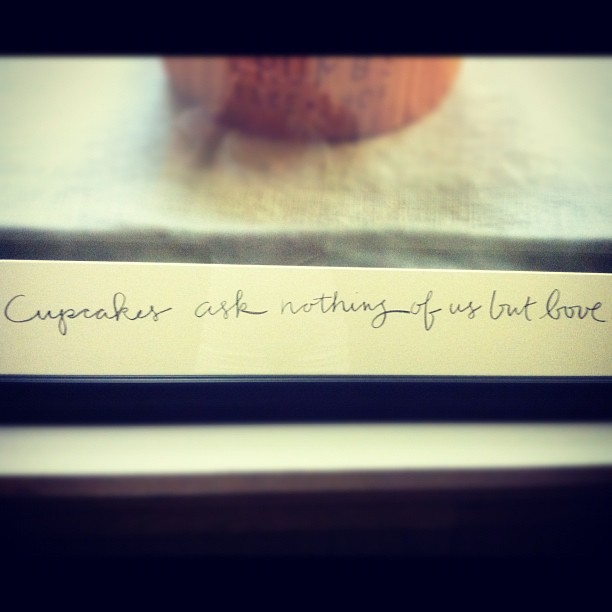 Cupcakes ask nothing of us but love